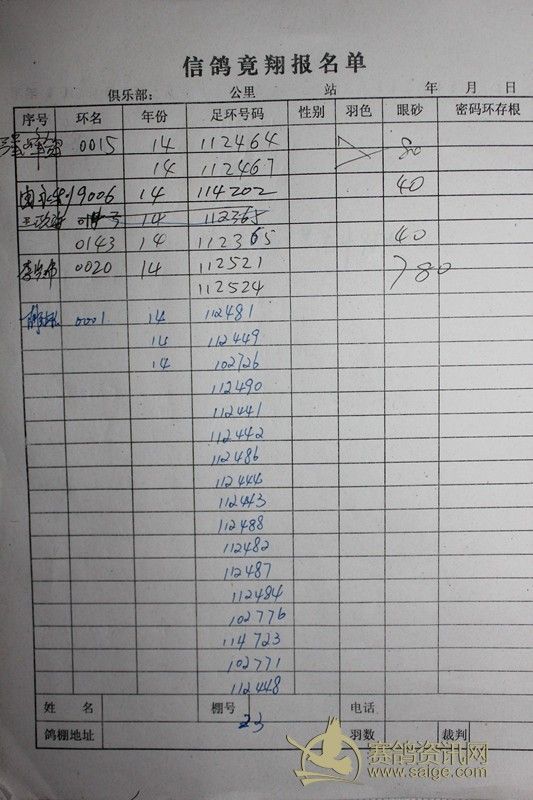 信鸽竞翔报名单
俱乐部: 公里 站 年 月 日
序号 环名 年份 足环号码 性别 羽色 眼砂 密码环存根
0015 14 112464 80
14 112467
9006 14 114202 40
14 112365
0143 14 112365 40
0020 14 112521 780
112524
0001 14 112481
14 112449
14 102726
112490
112441
112442
112486
112444
112443
112488
112482
112487
112484
102776
114723
102771
112448
姓名 棚号 电话
23
鸽棚地址 羽数 裁判
赛鸽资讯网
www.saige.com